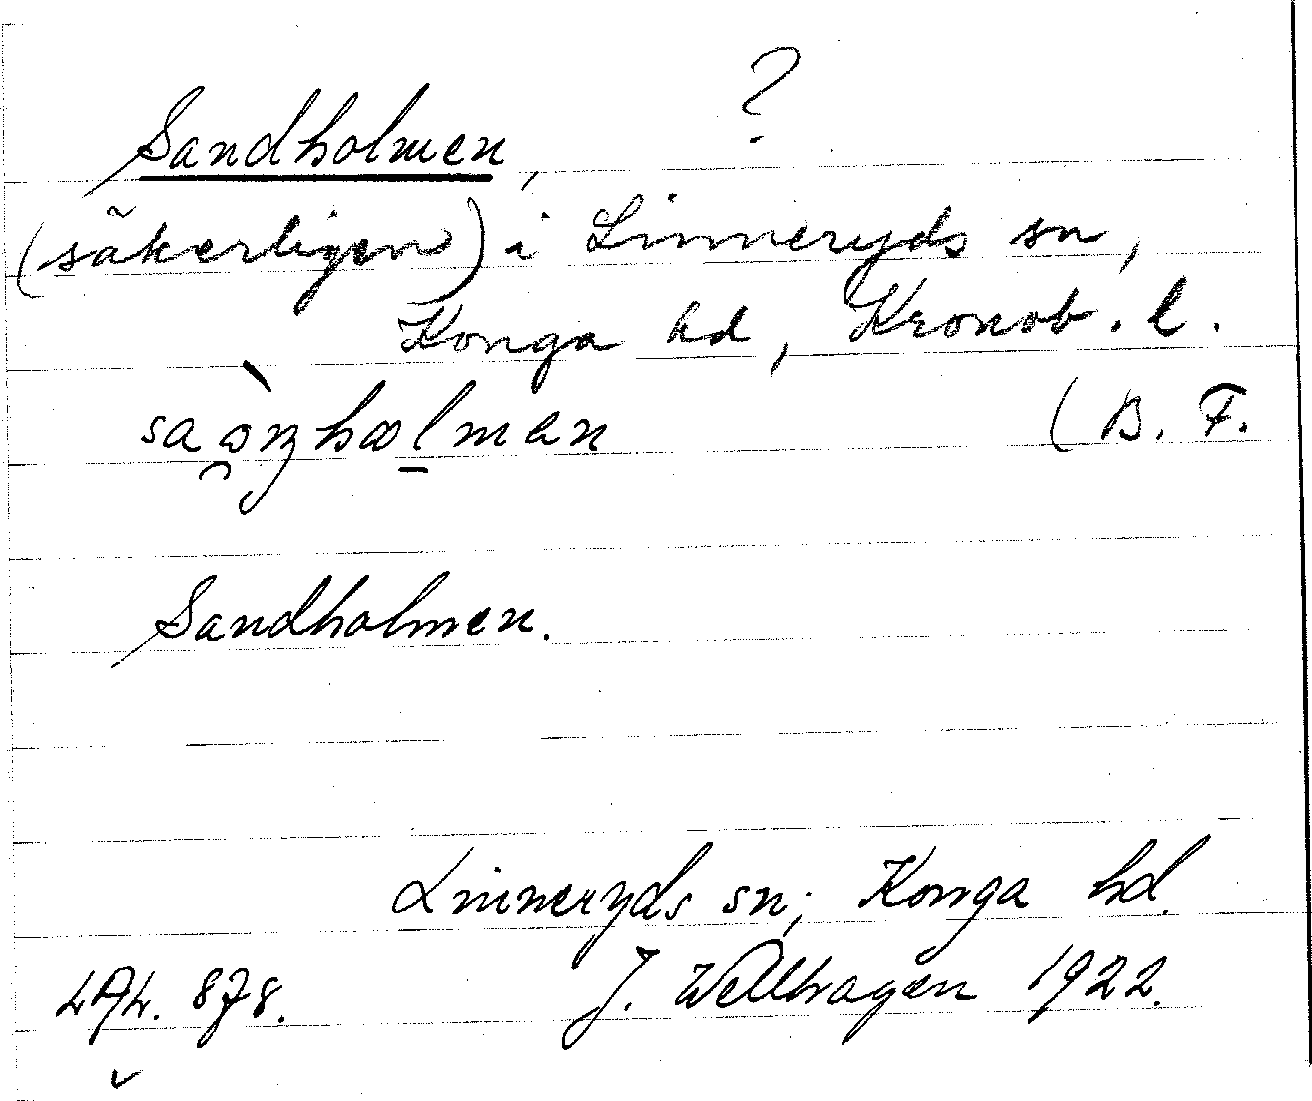 Sandholmen, ?
(säkerligen) i Linneryds sn,
Konga hd, Kronob. l.
(B. F.
Sandholmen.
Linneryds sn, Konga hd.
LAL. 878. J. Wellhagen 1922.